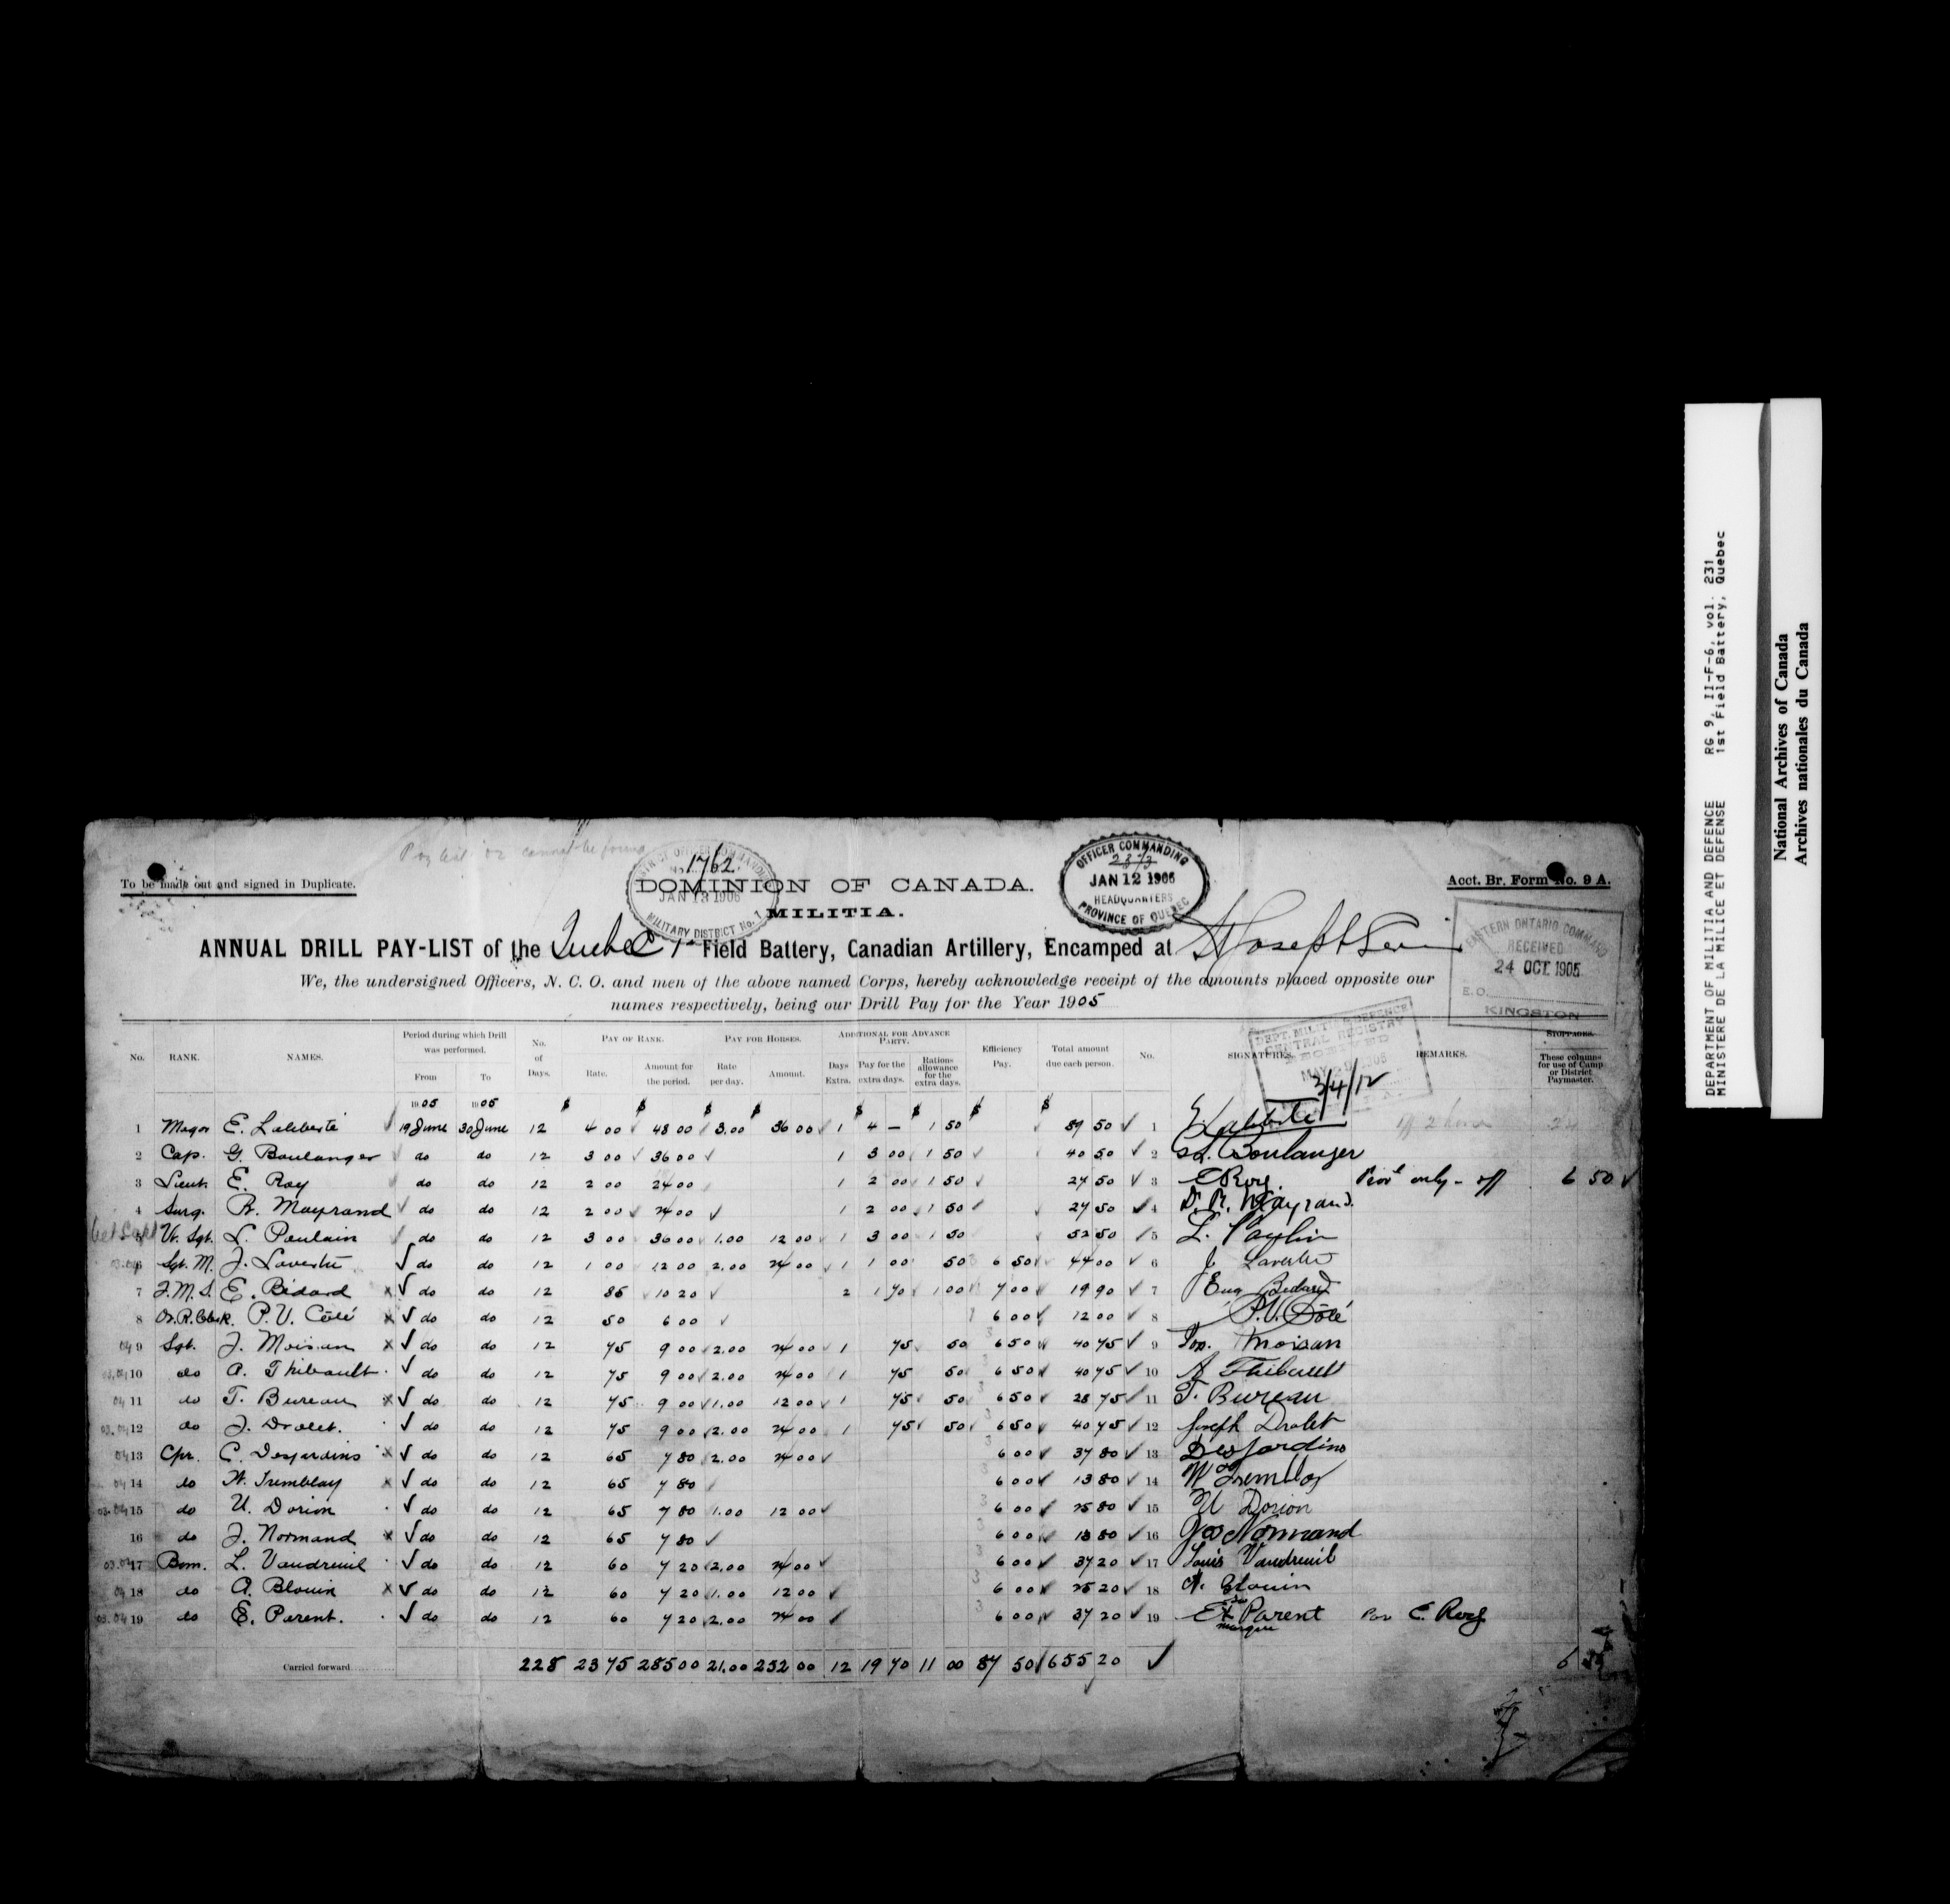 To be made out and signed in Duplicate.
1762
DOMINION OF CANADA.
MILITIA.
JAN 13 1906
MILITARY DISTRICT No. 1
OFFICER COMMANDING
JAN 12 1906
HEADQUARTERS
PROVINCE OF QUEBEC
Acct. Br. Form No. 9 A.
EASTERN ONTARIO COMMAND
RECEIVED
24 OCT. 1905
E.O.
KINGSTON
ANNUAL DRILL PAY-LIST of the Quebec 1st Field Battery, Canadian Artillery, Encamped at St Joseph Levis
We, the undersigned Officers, N. C. O. and men of the above named Corps, hereby acknowledge receipt of the amounts placed opposite our
names respectively, being our Drill Pay for the Year 1905
DEPT. MILITIA & DEFENCE
CENTRAL REGISTRY
RECEIVED
3/4/12
No. RANK. NAMES. Period during which Drill was performed. From To No. of Days. PAY OF RANK. Rate. Amount for the period. PAY FOR HORSES. Rate per day. Amount. ADDITIONAL FOR ADVANCE PARTY. Days Extra. Pay for the extra days. Rations allowance for the extra days. Efficiency Pay. Total amount due each person. No. SIGNATURES. REMARKS. STOPPAGES. These columns for use of Camp or District Paymaster.
1905 1905 $ $ $ $ $ $ $ $
1 Major E. Laliberté 19 June 30 June 12 4 00 48 00 3.00 36 00 1 4 — 1 50 89 50 1 E Laliberté
2 Cap. G. Boulanger do do 12 3 00 36 00 1 3 00 1 50 40 50 2 Boulanger
3 Lieut. E. Roy do do 12 2 00 24 00 1 2 00 1 50 27 50 3 E Roy. Prov only - off 6 50
4 Surg. R. Mayrand do do 12 2 00 24 00 1 2 00 1 50 27 50 4 Dr. R. Mayrand.
5 Vt. Sgt. L. Poulain do do 12 3 00 36 00 1.00 12 00 1 3 00 1 50 52 50 5 L. Paulin
6 Sgt. M. J. Lavertu do do 12 1 00 12 00 2.00 24 00 1 1 00 50 6 50 44 00 6 J Lavertu
7 F.M.S. E. Bédard x do do 12 85 10 20 2 1 70 1 00 7 00 19 90 7 Eug Bedard
8 Or.R.Clerk. P.V. Côté x do do 12 50 6 00 6 00 12 00 8 P.V. Côté
04 9 Sgt. J. Moisan x do do 12 75 9 00 2.00 24 00 1 75 50 6 50 40 75 9 Jos. Moisan
03.04 10 do A. Thibault do do 12 75 9 00 2.00 24 00 1 75 50 6 50 40 75 10 A Thibault
04 11 do T. Bureau x do do 12 75 9 00 1.00 12 00 1 75 50 6 50 28 75 11 T. Bureau
03.04 12 do J. Drolet. do do 12 75 9 00 2.00 24 00 1 75 50 6 50 40 75 12 Joseph Drolet
04 13 Cpr. C. Desjardins x do do 12 65 7 80 2.00 24 00 6 00 37 80 13 Desjardins
04 14 do W. Tremblay x do do 12 65 7 80 6 00 13 80 14 W Tremblay
03.04 15 do U. Dorion do do 12 65 7 80 1.00 12 00 6 00 25 80 15 U Dorion
16 do J. Normand x do do 12 65 7 80 6 00 13 80 16 Jos Normand
03.04 17 Bom. L. Vaudreuil do do 12 60 7 20 2.00 24 00 6 00 37 20 17 Louis Vaudreuil
04 18 do A. Blouin x do do 12 60 7 20 1.00 12 00 6 00 25 20 18 A. Blouin
03.04 19 do E. Parent. do do 12 60 7 20 2.00 24 00 6 00 37 20 19 E x Parent Par E. Roy
sa
marque
Carried forward 228 23 75 285 00 21.00 252 00 12 19 70 11 00 87 50 655 20
DEPARTMENT OF MILITIA AND DEFENCE RG 9, II-F-6, vol. 231
MINISTERE DE LA MILICE ET DEFENSE 1st Field Battery, Quebec
National Archives of Canada
Archives nationales du Canada